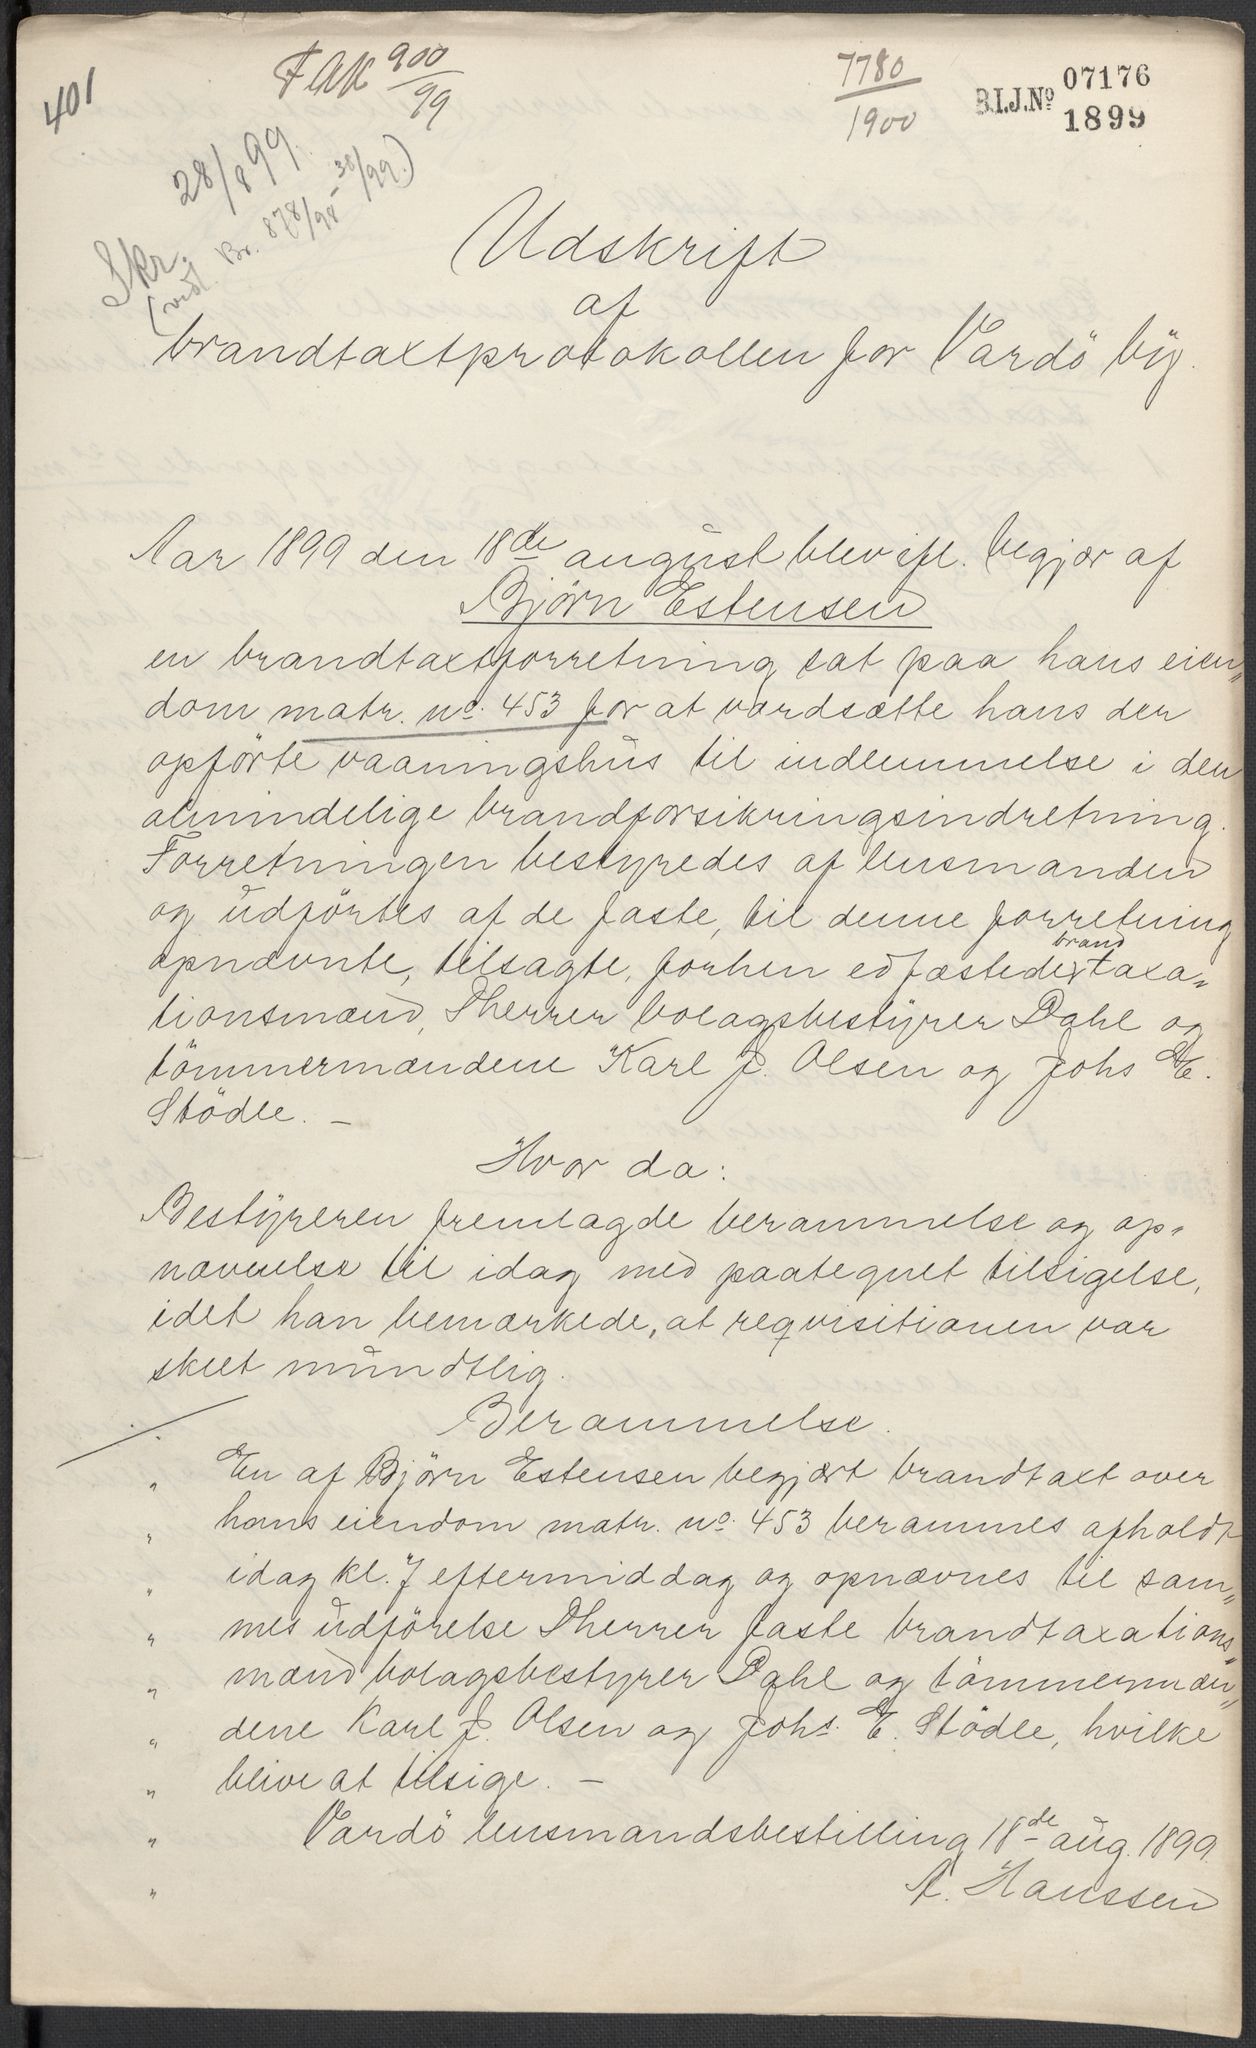 401
FAK 900/99
7780/1900
B.I.J.No 07176
1899
Skr. 28/8 99.
(vid. Br. 878/98 - 38/99.)
Udskrift
af
brandtaxtprotokollen for Vardö by.
Aar 1899 den 18de august blev ifl. begjær af
Björn Estensen
en brandtaxtforretning sat paa hans eien„
dom matr. no. 453 for at værdsætte hans der
opförte vaaningshus til indlemmelse i den
almindelige brandforsikringsindretning.
Forretningen bestyredes af lensmanden
og udförtes af de faste, til denne forretning
opnævnte, tilsagte, forhen edfæstede brandtaxa„
tionsmænd, Dherrer bolagsbestyrer Dahl og
tömmermændene Karl J. Olsen og Johs E.
Stödle. —
Hvor da:
Bestyreren fremlagde berammelse og op„
nævnelse til idag med paategnet tilsigelse,
idet han bemærkede, at reqvisitionen var
skeet mundtlig.
Berammelse.
„ En af Björn Estensen begjært brandtaxt over
„ hans eiendom matr. no. 453 berammes afholdt
„ idag kl. 7 eftermiddag og opnævnes til sam„
„ mes udförelse Dherrer faste brandtaxations„
„ mænd bolagsbestyrer Dahl og tömmermæn„
„ dene Karl J. Olsen og Johs. E. Stödle, hvilke
„ blive at tilsige. —
„ Vardö lensmandsbestilling 18de aug. 1899.
„ A. Hanssen